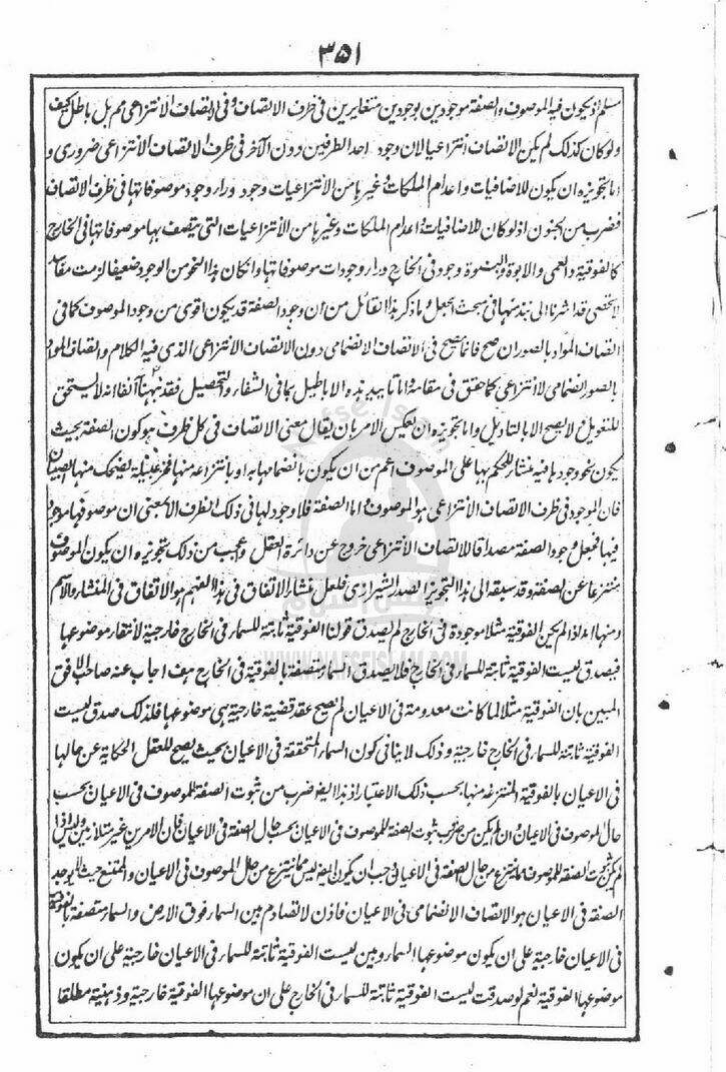 ۳۵۱
مسلم اذ يكون فيه الموصوف والصفة موجودين بوجودين متغايرين فى ظرف الاتصاف وفى الاتصاف الانتزاعى مم بل باطل كيف
ولو كان كذلك لم يكن الاتصاف انتزاعيا لان وجود احد الطرفين دون الآخر فى ظرف الاتصاف الانتزاعى ضرورى و
اما تجويزه ان يكون للاضافيات واعدام الملكات وغيرها من الانتزاعيات وجود وراء وجود موصوفاتها فى ظرف الاتصاف
فضرب من الجنون اذ لو كان للاضافيات واعدام الملكات وغيرها من الانتزاعيات التى يتصف بها موصوفاتها فى الخارج
كالفوقية والعمى والابوة والبنوة وجود فى الخارج وراء وجودات موصوفاتها وان كان هذا النحو من الوجود ضعيفا لزمت مفاسد
لا تحصى قد اشرنا الى نبذ منها فى مبحث الجعل وما ذكر هذا القائل من ان وجود الصفة قد يكون اقوى من وجود الموصوف كما فى
اتصاف المواد بالصور ان صح فانما يصح فى الاتصاف الانضمامى دون الاتصاف الانتزاعى الذى فيه الكلام واتصاف المواد
بالصور انضمامى لا انتزاعى كما حقق فى مقامه واما تاييد هذه الاباطيل بما فى الشفاء والتحصيل فقد نبهناك آنفا انه لا يستحق
للتعويل لا يصح الا بالتاويل واما تجويزه ان يعكس الامر بان يقال معنى الاتصاف فى كل ظرف هو كون الصفة بحيث
يكون نحو وجودها فيه منشاء للحكم بها على الموصوف اعم من ان يكون بانضمامها به او بانتزاعه منها فخزعبيلة يضحك منها الصبيان
فان الموجود فى ظرف الاتصاف الانتزاعى هو الموصوف واما الصفة فلا وجود لها فى ذلك الظرف الا بمعنى ان موصوفها موجود
فيها فجعل وجود الصفة مصداقا للاتصاف الانتزاعى خروج عن دائرة العقل واعجب من ذلك تجويزه ان يكون الموصوف
منتزعا عن الصفة وقد سبقه الى هذا التجويز الصدر الشيرازى فلعل منشاء الاتفاق فى هذا الفهم هو الاتفاق فى المنشاء والاسم
ومنها انه اذا لم يكن الفوقية مثلا موجودة فى الخارج لم يصدق قولنا الفوقية ثابتة للسماء فى الخارج خارجية لانتفاء موضوعها
فيصدق ليست الفوقية ثابتة للسماء فى الخارج فلا يصدق السماء متصفة بالفوقية فى الخارج هف اجاب عنه صاحب الافق
المبين بان الفوقية مثلا لما كانت معدومة فى الاعيان لم يصح عقد قضية خارجية هى موضوعها فلذلك صدق ليست
الفوقية ثابتة للسماء فى الخارج خارجية وذلك لا ينافى كون السماء المتحققة فى الاعيان بحيث يصح للعقل الحكاية عن حالها
فى الاعيان بالفوقية المنتزعة منها بحسب ذلك الاعتبار اذ هذا ايضا ضرب من ثبوت الصفة للموصوف فى الاعيان بحسب
حال الموصوف فى الاعيان وان لم يكن من ضرب ثبوت الصفة للموصوف فى الاعيان بحسب حال الصفة فى الاعيان فان الامرين غير متلازمين وليس اذا
لم يكن ثبوت الصفة للموصوف مما ينتزع من حال الصفة فى الاعيان وجب ان يكون ايضا ليس مما ينتزع من حال الموصوف فى الاعيان والممتنع حيث لا يوجد
الصفة فى الاعيان هو الاتصاف الانضمامى فى الاعيان فاذن لا تصادم بين السماء فوق الارض والسماء متصفة بالفوقية
فى الاعيان خارجية على ان يكون موضوعها السماء وبين ليست الفوقية ثابتة للسماء فى الاعيان خارجية على ان يكون
موضوعها الفوقية نعم لو صدقت ليست الفوقية ثابتة للسماء فى الخارج على ان موضوعها الفوقية خارجية وذهنية مطلقا
Nafse Islam
نفس اسلام
WWW.NAFSEISLAM.COM